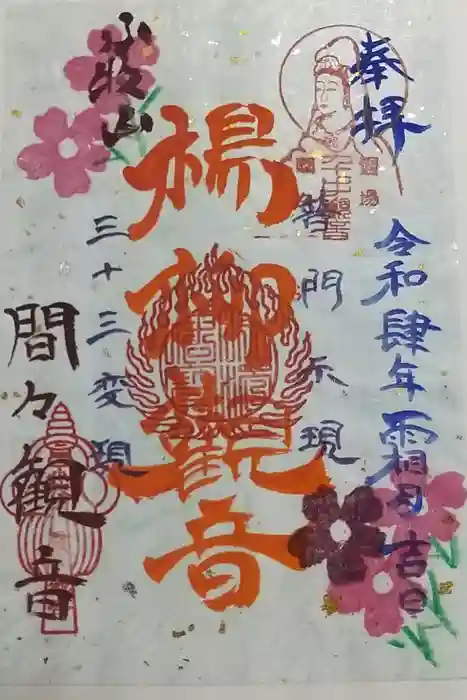 奉拝
令和肆年霜月吉日
普門示現
楊柳観音
三十三変現
小牧山
間々観音